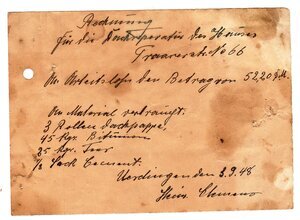 Rechnung
für die Dachreparatur des Hauses
No 66
An Arbeitslohn den Betrag von 52,20
An Material verbraucht:
3 Rollen Dachpappe,
45 Kgr. Bitumen
25 Kgr. Teer
1/2 Sack Cement.
Uerdingen den 3.9.48
Hein. Clemens